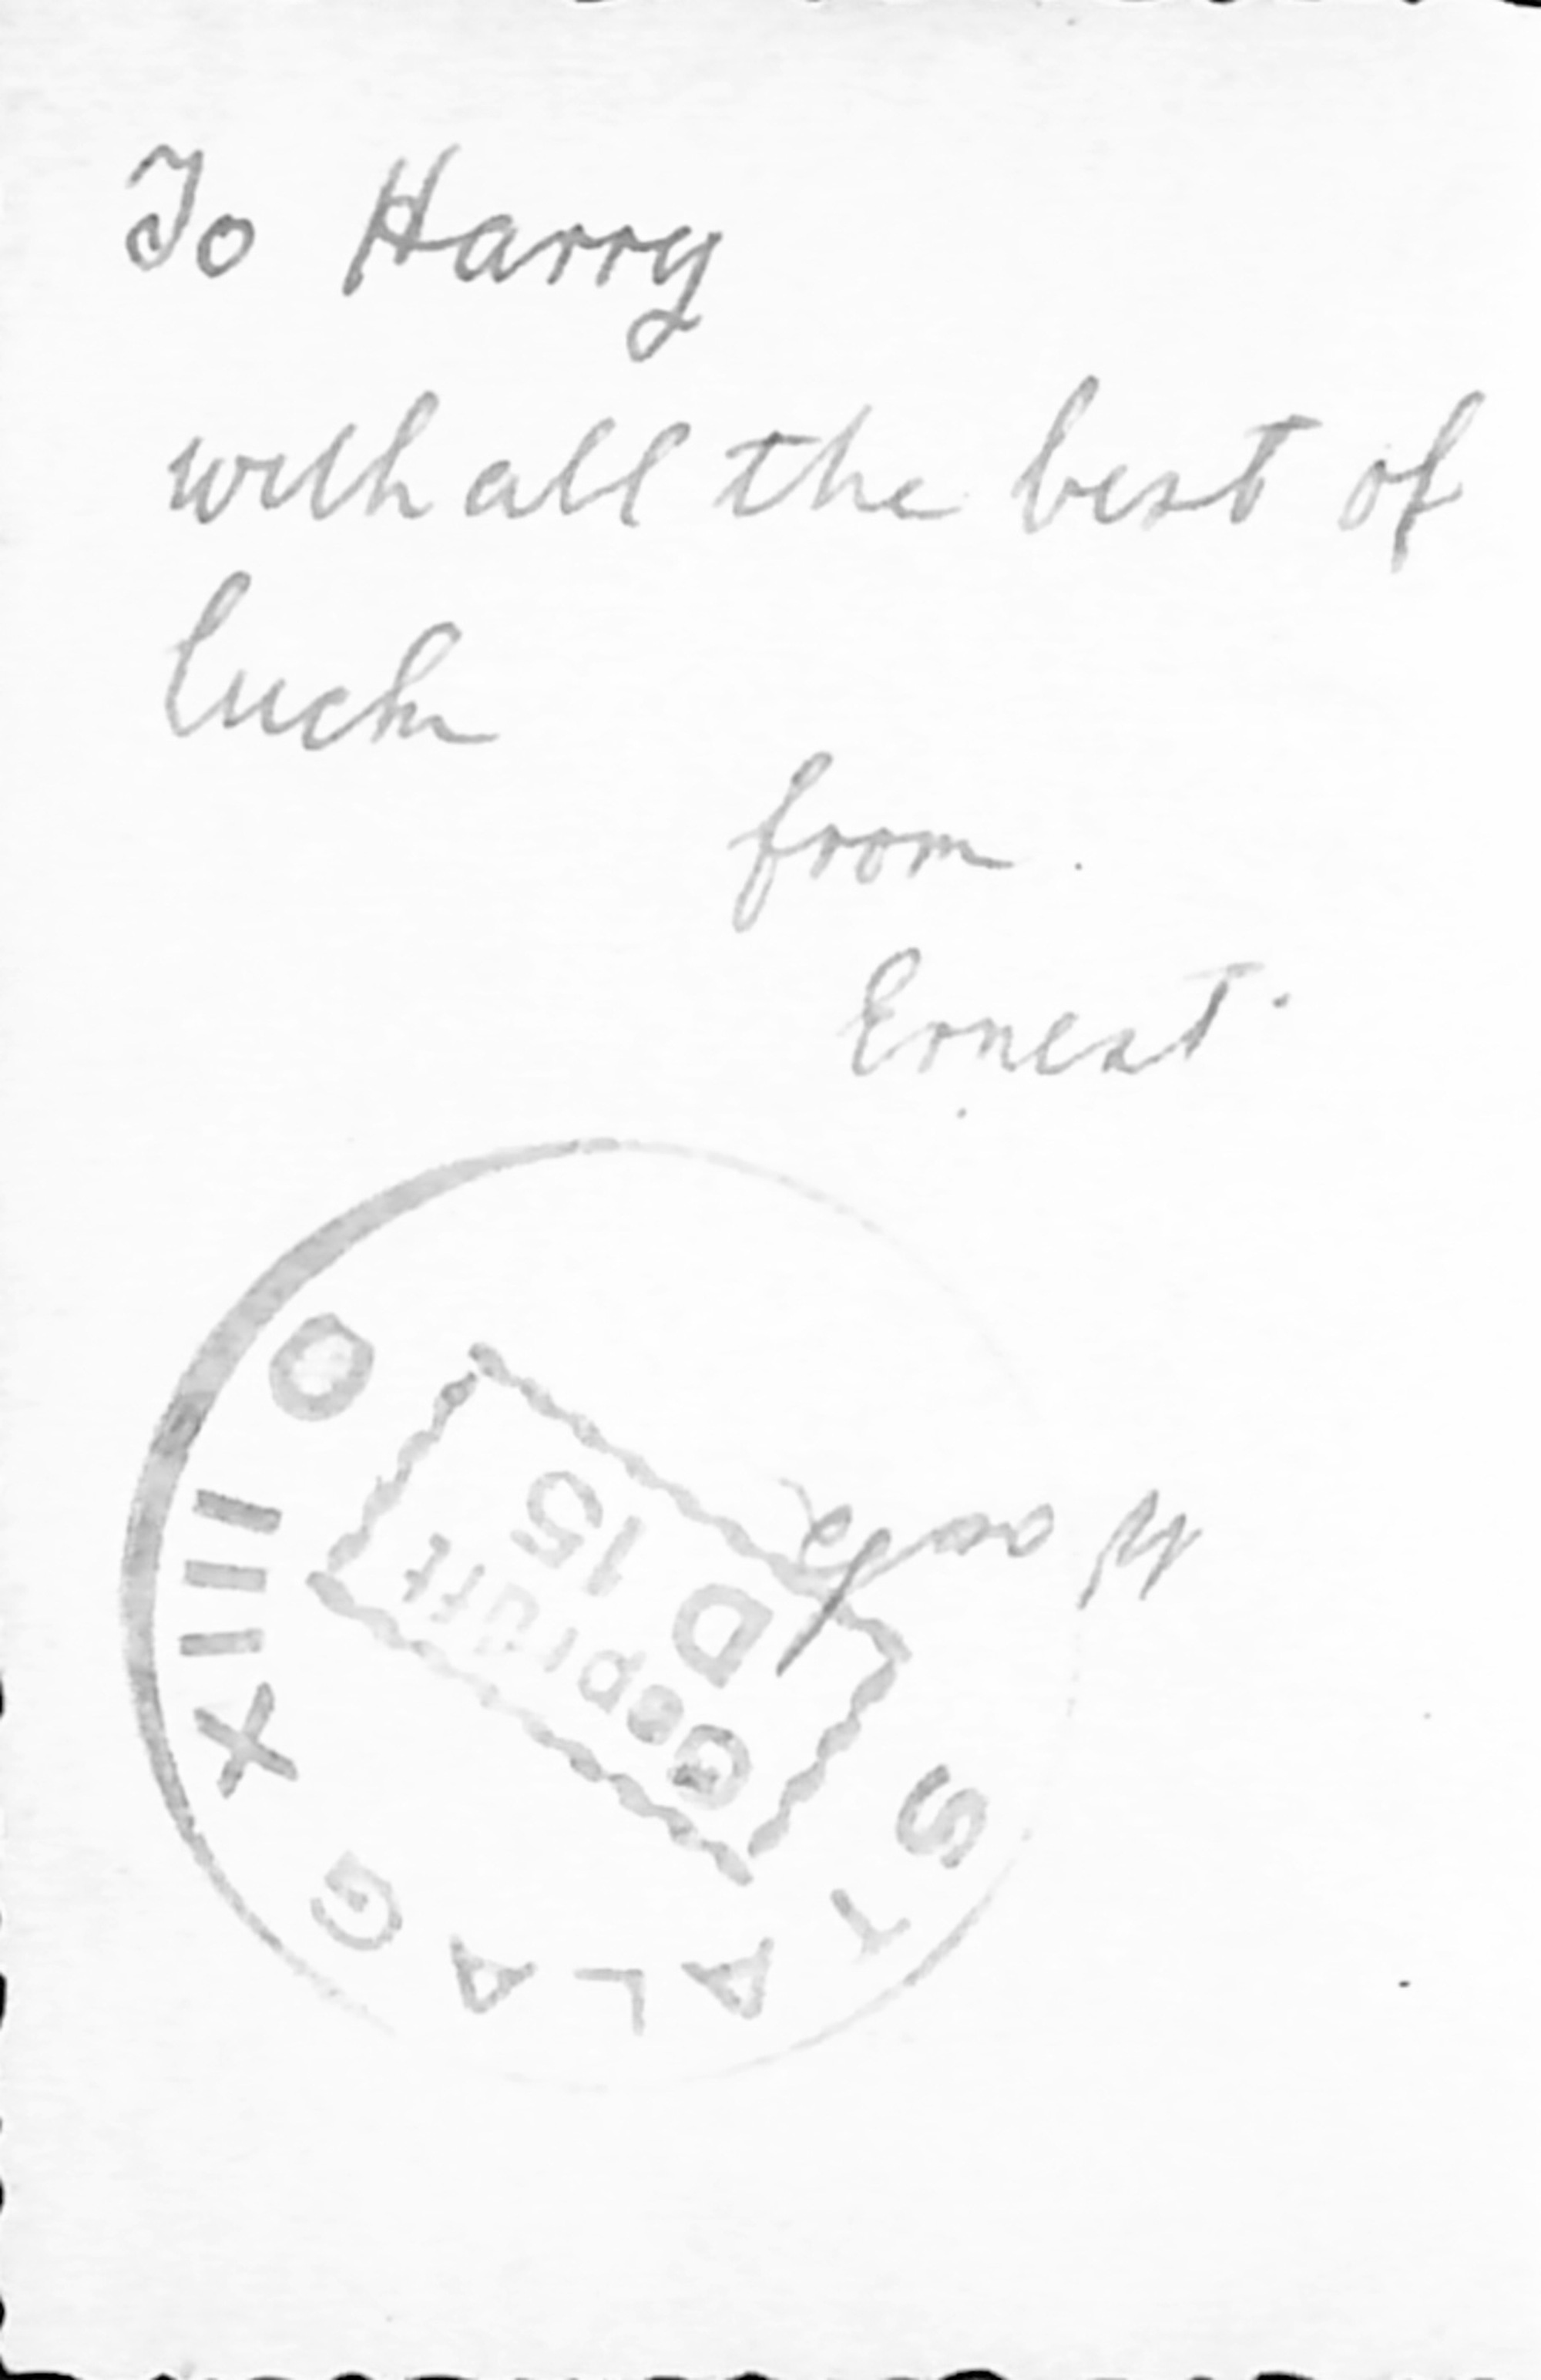 To Harry
with all the best of
luck
from
Ernest
STALAG XIII
Geprüft
D 15